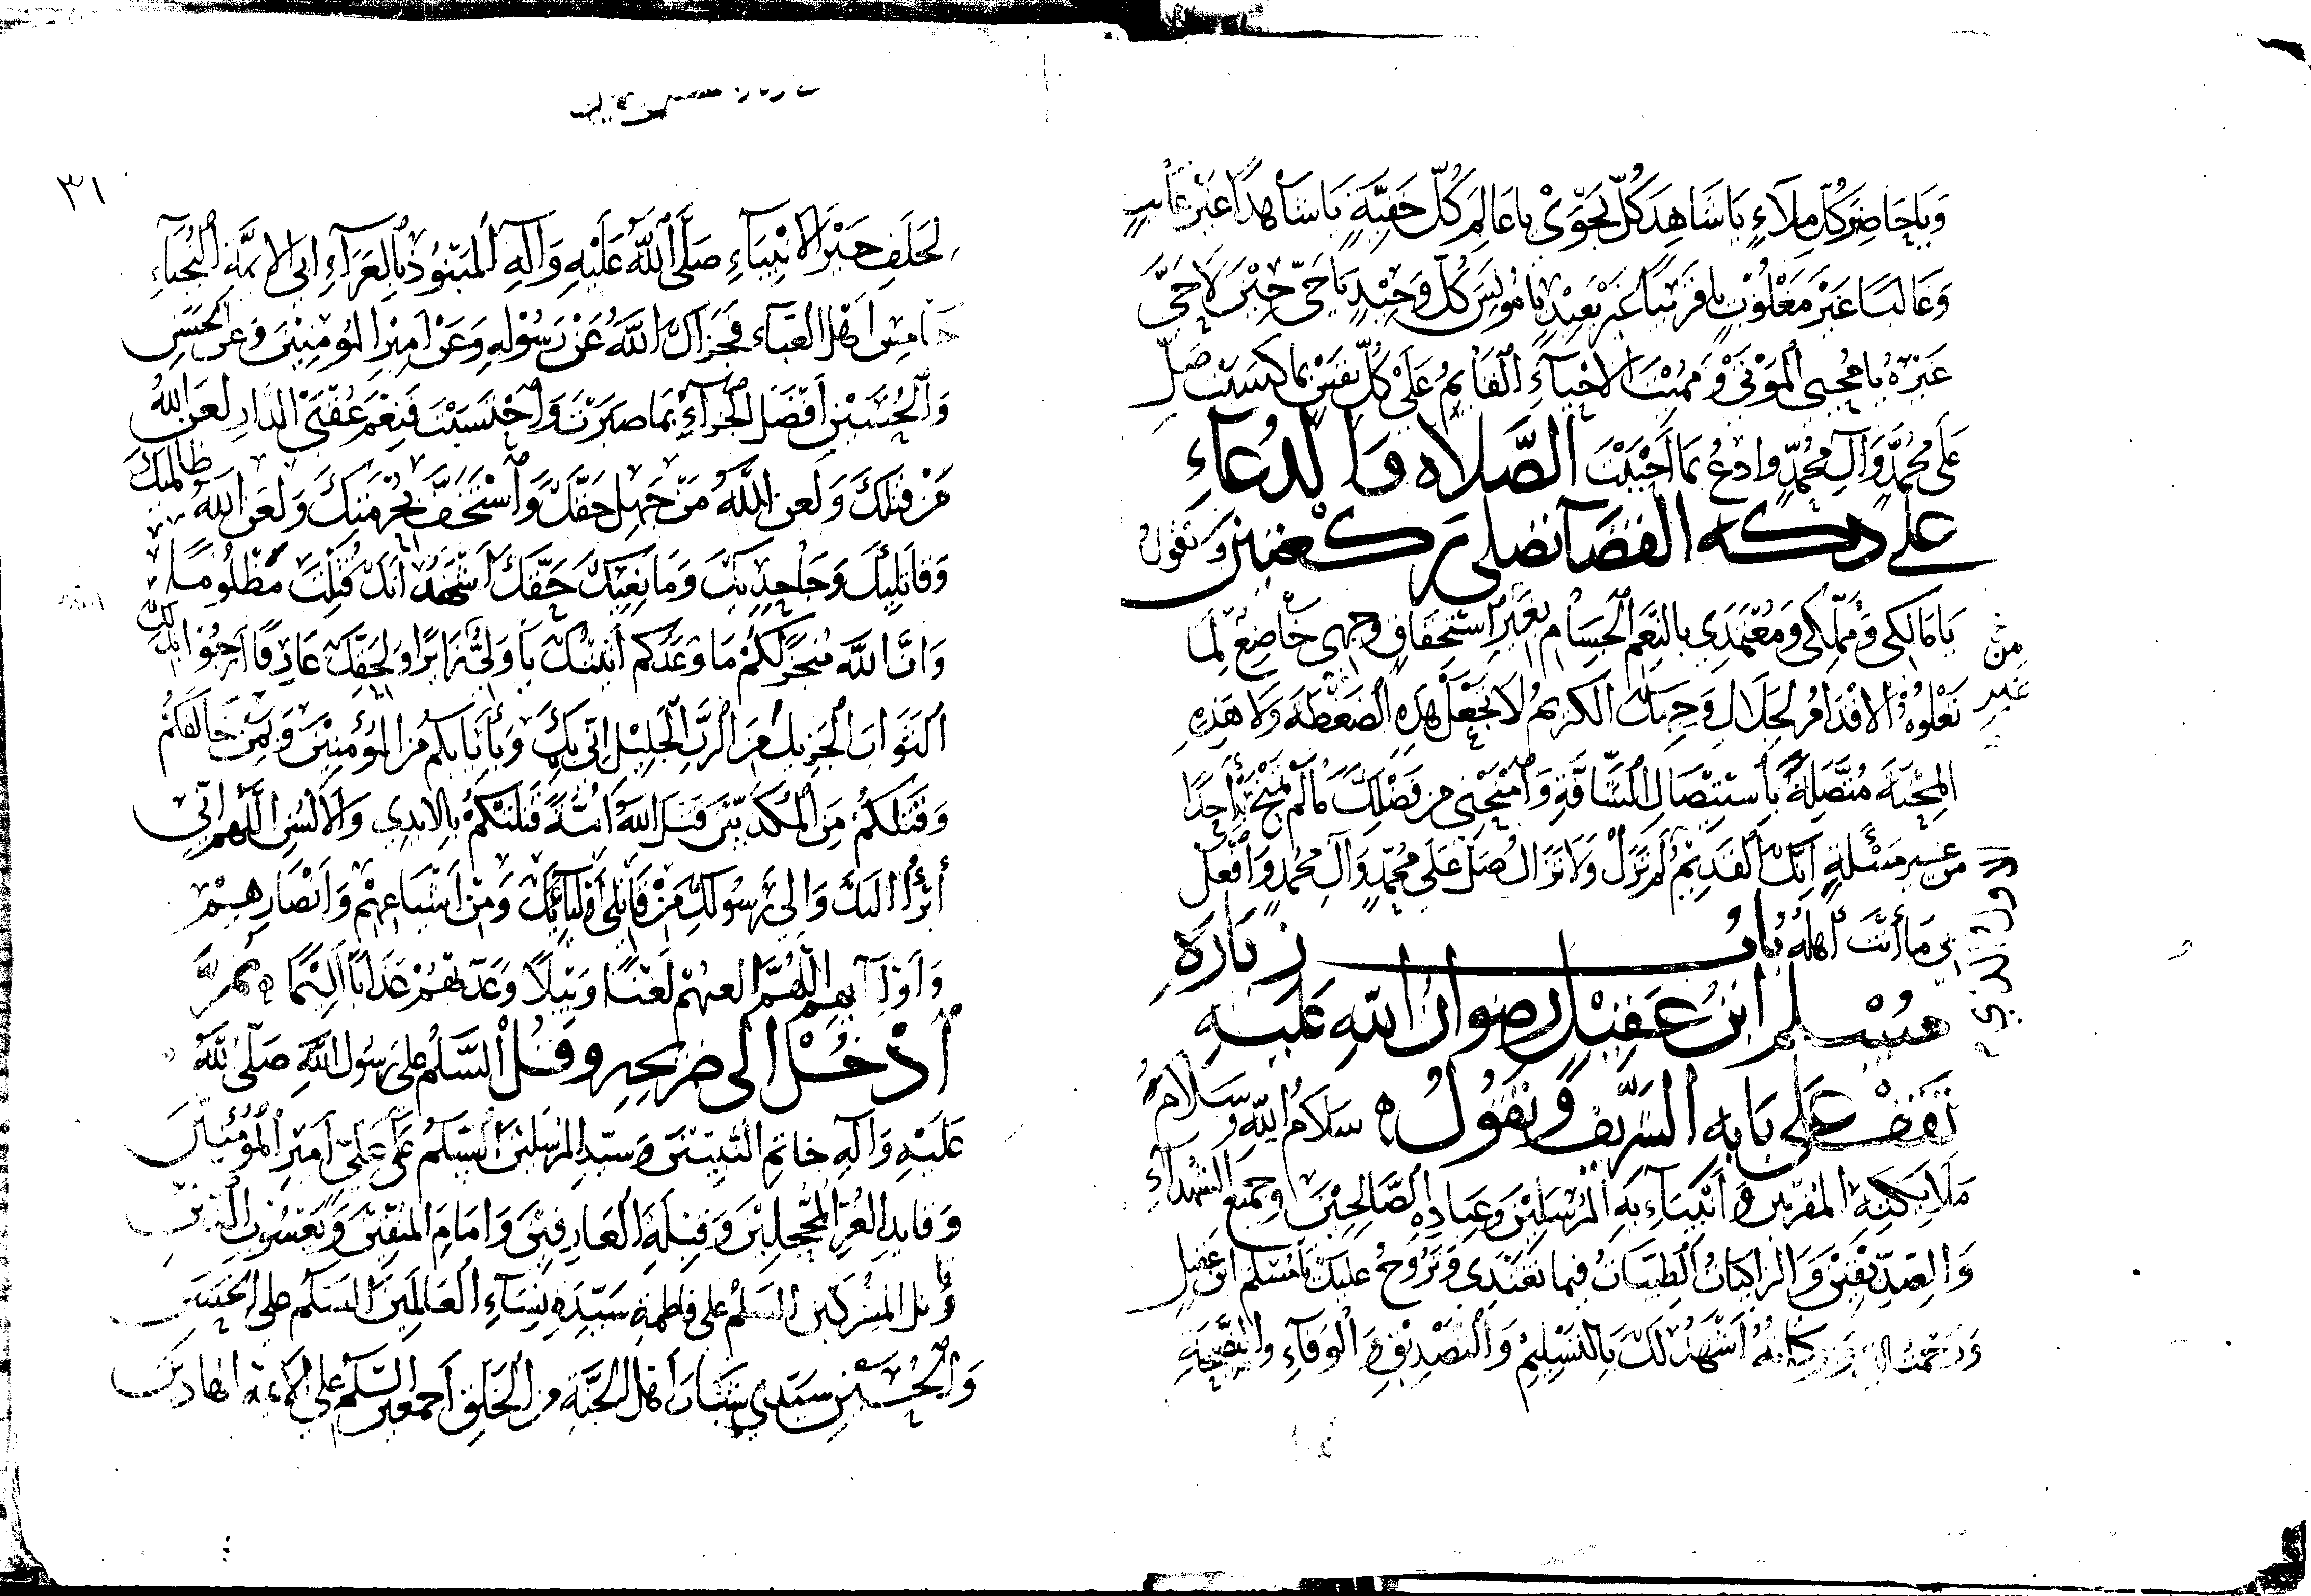 وَيَا حَاضِرَ كُلِّ مِلَاءٍ يَا شَاهِدَ كُلِّ نَجْوَىْ يا عَالِمَ كُلِّ خَفِيَّةٍ يَا شَاهِدًا غَيْرَ غَائبٍ
وَغَالبًا غَيْرَ مَغْلُوْبٍ يا قَرِيْبًا غَيْرَ بَعِيْدٍ يا مُونِسَ كُلِّ وَحِيْدٍ يَا حَيّ حِيْنَ لَا حَيَّ
غَيْرُهُ يَا مُحْيِي المَوْتَىْ وَمُمِيْتَ الاحْيَاءِ القَائِمُ عَلَىْ كُلِّ نَفْسٍ بِمَا كَسَبَت صَلِّ
عَلَى مُحَمَّدٍ وَآلِ مُحَمَّدٍ وادعُ بما أَحْبَبْتَ الصَّلاه وَالدُعَآءِ
على دكه القضا تصلى ركعتين وَتقولُ
يَا مَالِكِي وَمُمَلِّكِي وَمُعْتَمَدِي بالنِّعَمِ الْجِسَامِ بِغَيْرِ اسْتِحْقَاقٍ وَجهِي خَاضِعٌ لِمَا
تَعْلُوْهُ الاقْدَامُ لِجَلَالِ وَجهِكَ الكرِيمِ لاَ تَجْعَلْ هَذِهِ الضَغْطَةَ وَلَا هَذِهِ
المِحْنَةَ مُتَّصِلَةً بِاسْتِيْصَالِ الشَّاقَّةِ وَامْنَحْنِي مِن فَضْلِكَ مَا لَمْ تَمْنَحْ بِهِ أَحَدًا
مِن غيرِ مَسْئلةٍ اِنَّكَ القَدِيْمُ لَمْ تَزَلْ وَلَا تَزَالُ صَلِّ عَلَى مُحَمَّدٍ وَآلِ مُحَمَّدٍ وَافْعَلْ
بي مَا أَنْتَ أَهْلُهُ بَابُ زيَارَه
مُسْلمِ ابنِ عَقِيْلٍ رضوانُ اللّهِ عَلَيْهِ
تَقف عَلى بَابه الشريف وَتقُولُ سَلَامُ اللّهِ وَسَلَامُ
مَلَائِكَتِهِ المُقربين وَأَنْبِيَاءِهِ المُرْسَلِيْنَ وَعِبَادِهِ الصَّالِحِيْنَ وجميع الشهدآءِ
وَالصِّدِّيْقِيْنَ وَالزاكيَاتُ الطّيّبَاتُ فيما تَغْتَدِي وَتَرُوْحُ عليكَ يَا مُسْلم ابن عَقيل
وَرَحْمَتُ اللّهِ وَبَركَاتُهُ أَشْهَدُ لَكَ بِالتَّسْلِيْمِ وَالتَّصْدِيْقِ وَالْوَفَآءِ وَالنَّصِيْحَةِ
من
غير
٣١
لِخَلَفِ خَيْرِ الانْبِيَآءِ صَلَّى اللّهُ عَلَيْهِ وَآلِهِ المَنْبُوْذِ بِالعَرَآءِ ابي الائمَّةِ النُّجَبَآءِ
خَامِسِ أَهْلِ العَبَآءِ فَجَزَاكَ اللّهُ عَنْ رَسُوْلِهِ وَعَنْ اَمِيْرِ المُوْمِنِيْنَ وَعَن الحَسَنِ
وَالْحُسَيْنِ أَفْضَلَ الجَزَآءِ بِمَا صَبَرْتَ وَاحْتَسَبْتَ فَنِعْمَ عُقْبَى الدَّارِ لَعَنَ اللهُ
مَنْ قَتَلَكَ وَلَعن اللّهُ مَنْ جَهِلَ حَقَّكَ وَاسْتَخَفَّ بِحُرْمَتِكَ وَلَعَنَ اللهُ ظالمكَ
وَقاتِلِيْكَ وَجَاحِدِيْكَ وَمَانِعِيْكَ حَقَّكَ أَشْهَدُ اَنَّكَ قُتِلْتَ مَظْلُومًا
وَانَّ اللّهَ مُنْجِزٌ لَكُمْ مَا وَعَدَكم أَتَيْتُكَ يَا وَلِيُّ زَائِرًا وَلِحَقِّكَ عَارِفًا اَرْجُوا بِذَلكَ
الثَّوَابَ الجَزيلَ مِنَ الرَّبِّ الجَلِيْلِ اِنّي بِكَ وَبِأبَائكُم مِنَ المُؤْمِنِيْنَ وَبِمَنْ خَالَفَكُمْ
وَقَتَلَكُمْ مِنَ المُكَذِّبِيْنَ قَتَلَ اللّهُ اُمَّةً قَتَلَتْكُمْ بِالايدِي وَالاَلسُنِ اللَّهم اِنّي
أَبْرَأُ الَيكَ وَالَى رَسُولِكَ مَنْ قَاتِلِي أَوْلِيَائِكَ وَمِنْ اَشْيَاعِهِمْ وَأَنْصَارِهِمْ
وَاَوْلِيَآئِهِم اللهُمَّ العنهُمْ لَعْنًا وَبِيْلًا وَعَذِّبهُمْ عَذَابًا اَلِيْمًا ثُمَّ
أُدْخُلْ الى ضريحه وقُلْ السَّلمُ على رَسُولِ اللَّهِ صَلّى اللهُ
عَلَيْهِ وَآلِهِ خاتمِ النَّبِيِّيْنَ وسَيّدِ المُرْسَلِيْنَ السَّلمُ عَلَى عَلِيٍّ أَمِيْرِ المُؤْمِنِينَ
وَقايدِ الغُرِّ المُحَجَّلِيْنَ وَقِبْلَةِ العَارِفِيْنَ وَامَامِ المُتَّقِيْنَ وَيَعْسُوْبِ الدّين
وقَاتل المُشركين السَّلمُ على فاطمةِ سَيّدَةِ نِسَآءِ العَالَمِينَ السَّلمُ على الحَسَنِ
وَالْحُسَيْنِ سَيّدي شَبَابِ أَهْلِ الجَنَّةِ مِن الخَلْقِ أَجمعين السَّلمُ على الأئمة الهَادينَ